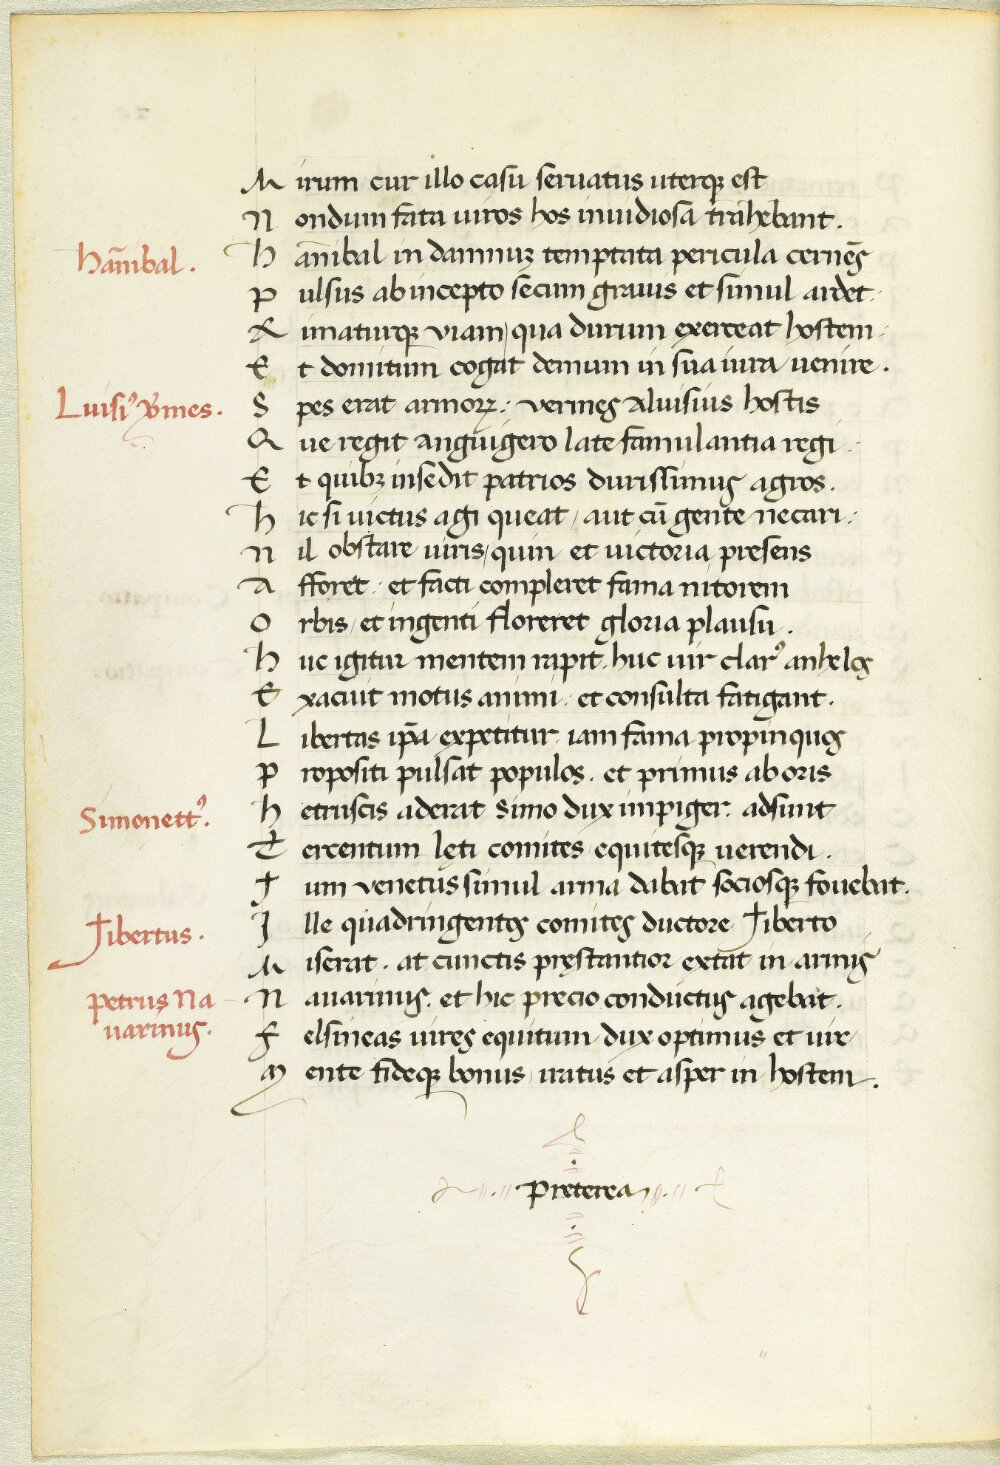 Mirum cur illo casu seruatus uterqꝫ est
Nondum fata uiros hos inuidiosa trahebant.
Hãnibal.
Hãnibal in damnuꝫ temptata pericula cernẽs
Pulsus ab incepto secum grauis et simul ardet.
Rimaturqꝫ viam, qua durum exerceat hostem.
Et domitum cogat demum in sua iura uenire.
Luisiꝰ Ꝟmes.
Spes erat armoꝝ: vermes Aluisius hostis
Que regit anguigero late famulantia regi.
Et quibꝫ insedit patrios durissimus agros.
Hic si uictus agi queat, aut cũ gente necari:
Nil obstare uiris, quin et uictoria presens
Afforet. et facti compleret fama nitorem
Orbis, et ingenti floreret gloria plausu.
Huc igitur mentem rapit. huc uir clarꝰ anhelos
Exacuit motus animi. et consulta fatigant.
Libertas ip̃a expetitur. iam fama propinquos
Propositi pulsat populos. et primus ab oris
Simonettꝰ.
Hetruscis aderat Simo dux impiger. adsunt
Tercentum lęti comites equitesqꝫ uerendi.
Tum venetus simul arma dabat sociosqꝫ fouebat.
Tibertus.
Ille quadringentos comites ductore Tiberto
Miserat. at cunctis pręstantior extat in armis
Petrus Na
uarinus.
Nauarinus. et hic precio conductus agebat.
Felsineas uires equitum dux optimus et uir
Mente fideqꝫ bonus, iratus et asper in hostem.
Pręterea